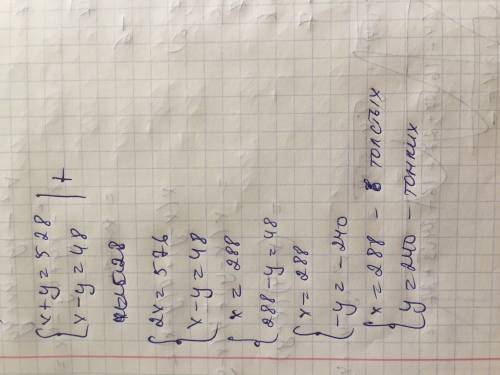 {x+y=528
{x-y=48 | +
{2x=576
{x-y=48
{x = 288
{288-y=48
{x=288
{-y=-240
{x=288 - толстых
{y=240 - тонких